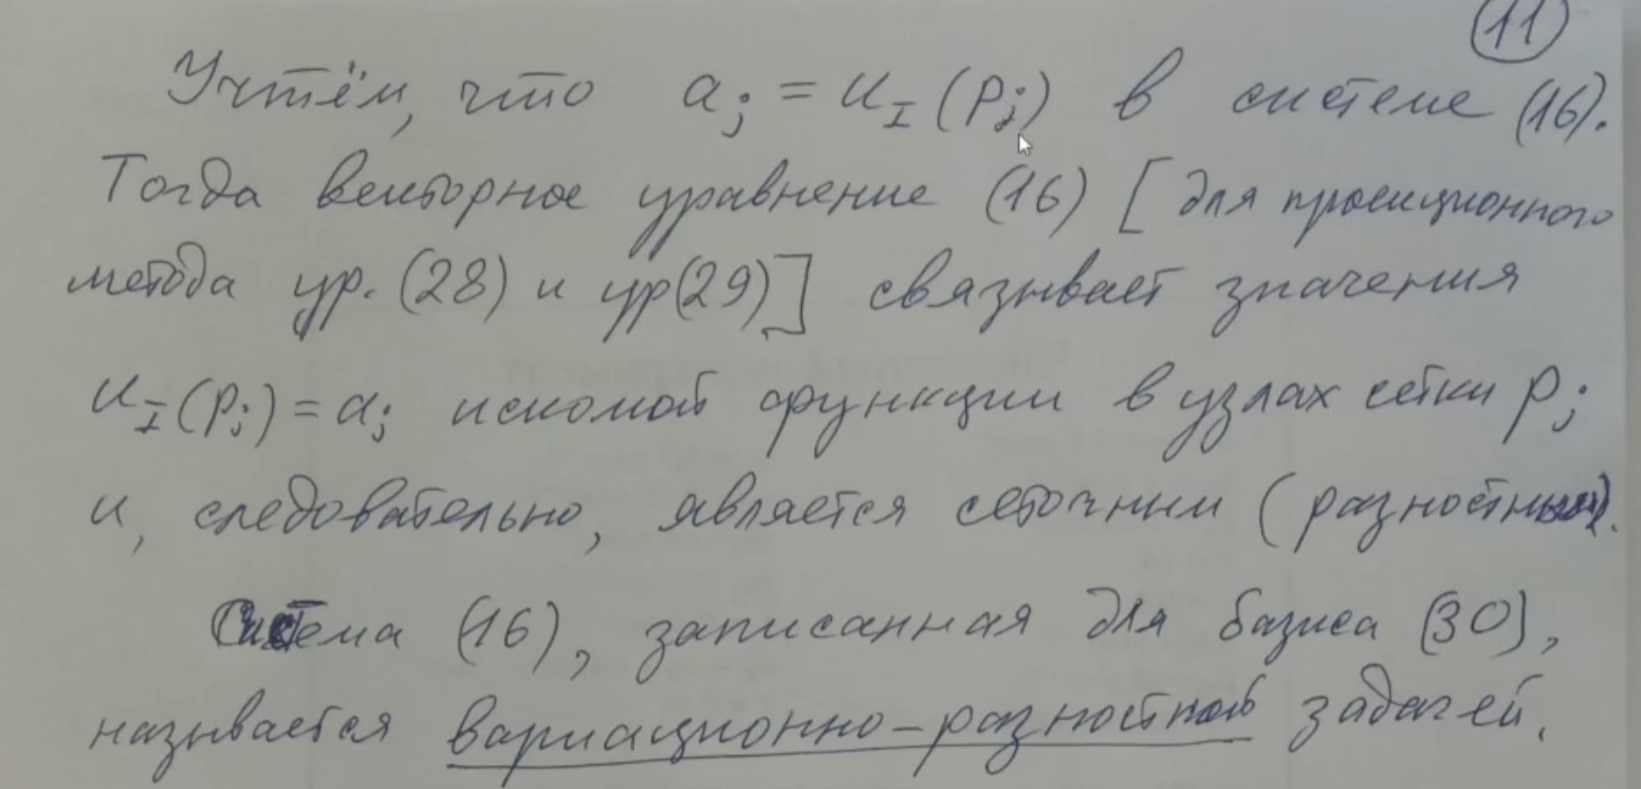 11
Учтём, что a_j = u_I (P_j) в системе (16).
Тогда векторное уравнение (16) [ для проекционного
метода ур. (28) и ур(29)] связывает значения
u_I (P_j) = a_j искомой функции в узлах сетки P_j
и, следовательно, является сеточным (разностным).
Система (16), записанная для базиса (30),
называется вариационно-разностной задачей.